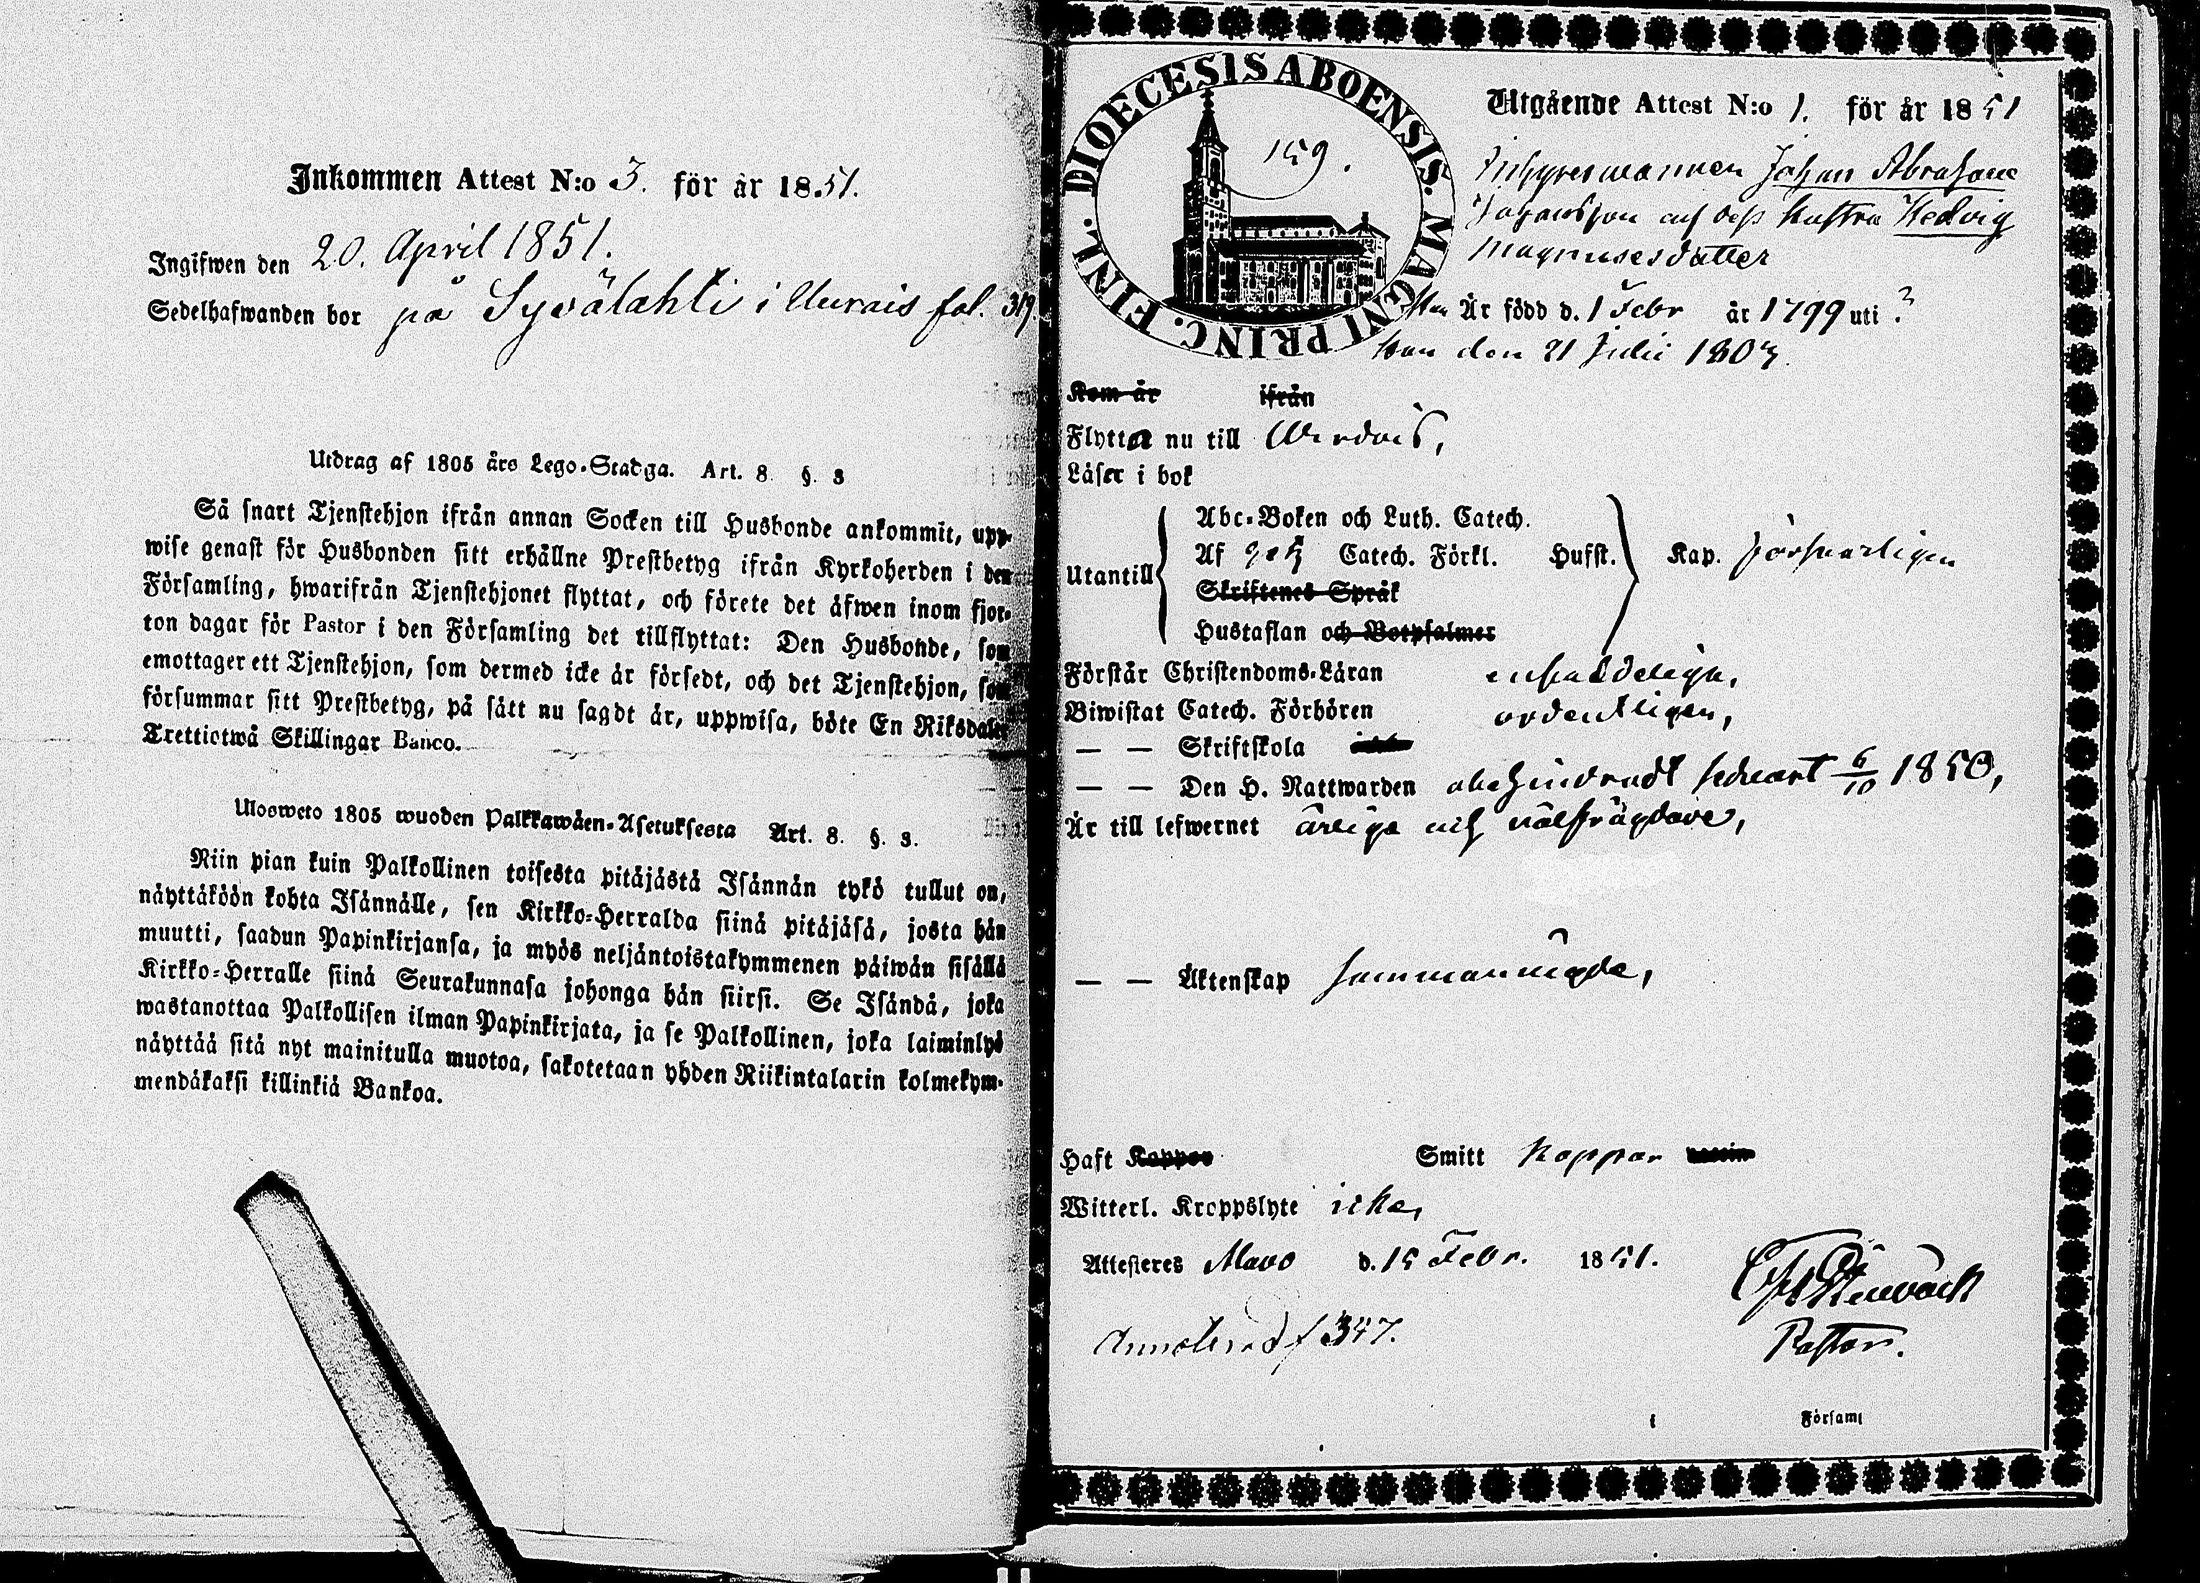 Inkommen Attest N:o 3. för år 1851.
Ingifwen den 20. April 1851.
Sedelhafwanden bor på Syvälahti i fol. 319.
Utdrag af 1805 års Lego-Stadga. Art. 8. §. 3
Så snart Tjenstehjon ifrån annan Socken till Husbonde ankommit, upp-
wise genast för Husbonden sitt erhållne Prestbetyg ifrån Kyrkoherden i den
Församling, hwarifrån Tjenstehjonet flyttat, och förete det äfwen inom fjor-
ton dagar för Pastor i den Församling det tillflyttat: Den Husbonde, som
emottager ett Tjenstehjon, som dermed icke är försedt, och det Tjenstehjon, som
försummar sitt Prestbetyg, på sätt nu sagdt är, uppwisa, böte En Riksdaler
Trettiotwå Skillingar Banco.
Ulosweto 1805 wuoden Palkkawäen-Asetuksesta Art. 8. §. 3.
Niin pian kuin Palkollinen toisesta pitäjästä Isännän tykö tullut on,
näyttäköön kohta Isännälle, sen Kirkko-Herralda siinä pitäjäsä, josta hän
muutti, saadun Papinkirjansa, ja myös neljäntoistakymmenen päiwän sisällä
Kirkko-Herralle siinä Seurakunnasa johonga hän siirsi. Se Isändä, joka
wastanottaa Palkollisen ilman Papinkirjata, ja se Palkollinen, joka laiminlyö
näyttää sitä nyt mainitulla muotoa, sakotetaan yhden Riikintalarin kolmekym-
mendäkaksi killinkiä Bankoa.
DIOECESIS ABOENSIS. MAGNI PRINC. FINL.
159.
Utgående Attest N:o 1. för år 1851
Inhysesmannen Johan Abraham
Johansson och dess hustru Hedvig
Magnusesdotter
Han Är född d. 1 Febr år 1799 uti ?
Hon den 21 Julii 1807.
Kom år ifrån
Flytta nu till Wirdois,
Läser i bok
Utantill
Abc-Boken och Luth. Catech.
Af Catech. Förkl. Hufst. Kap. försvarligen
Skriftenes Språk
Hustaflan och Botpsalmer
Förstår Christendoms-Läran enfaldeligen,
Biwistat Catech. Förhören ordentligen,
— — Skriftskola
— — Den H. Nattwarden obehindradt senast 6/10 1850,
Är till lefwernet ärliga och välfrägdade,
— — Äktenskap sammanvigde,
Haft Koppor Smitt koppor
Witterl. Kroppslyte icke,
Attesteres Alavo d. 15 Febr. 1851.
Pastor.
f 347.
i Församl